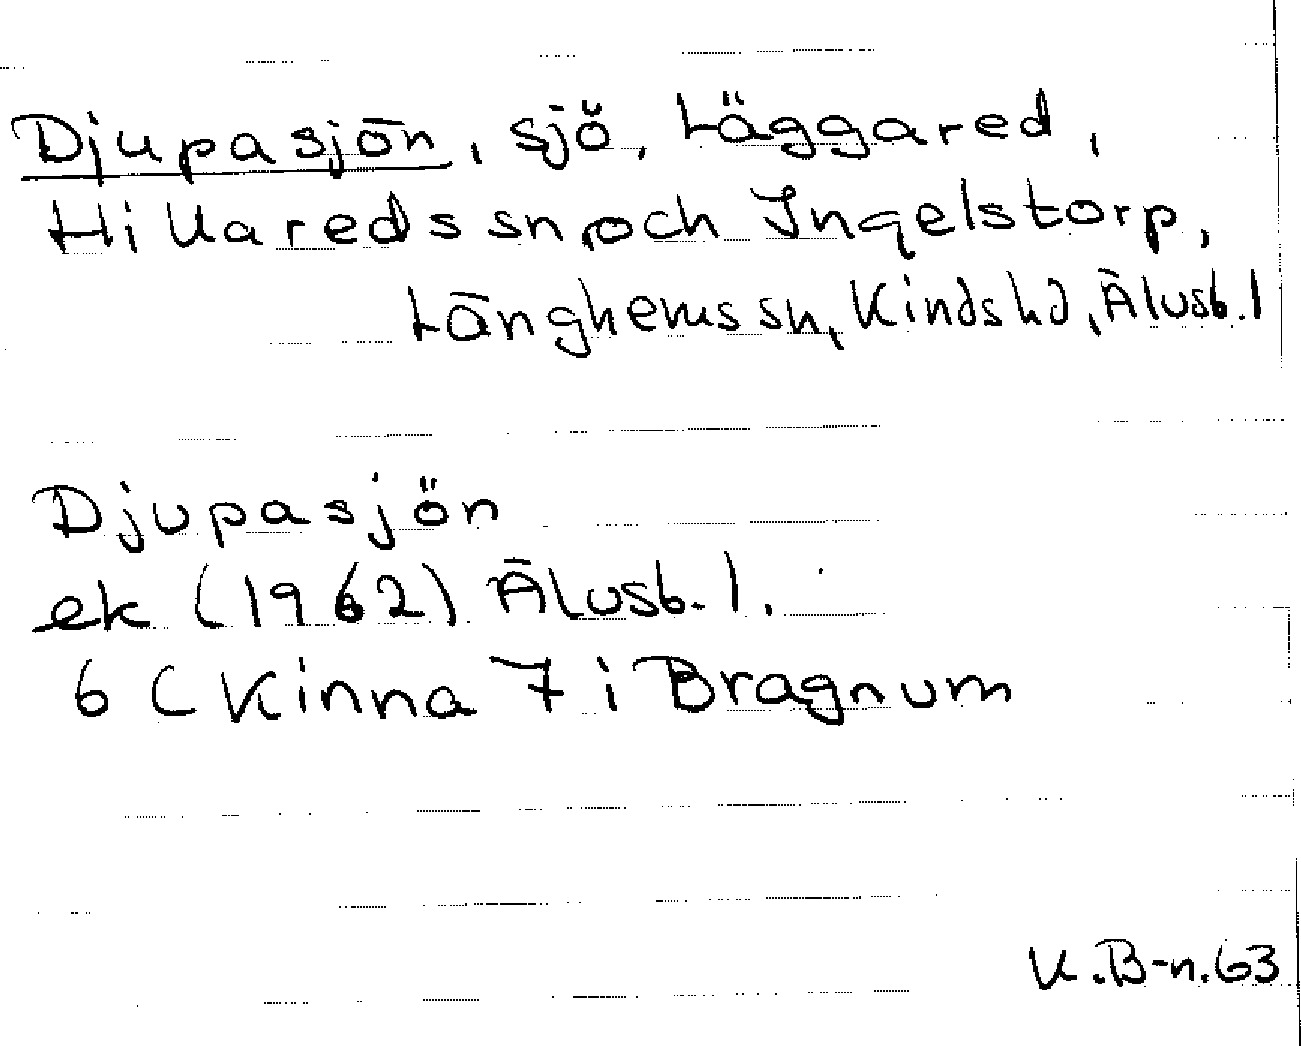 Djupasjön, sjö, Läggared,
Hillareds sn, och Ingelstorp,
Länghems sn, Kinds hd, Älvsb. l
Djupasjön
ek (1962) Älvsb. l.
6 C Kinna 7 i Bragnum
K.B-n. 63